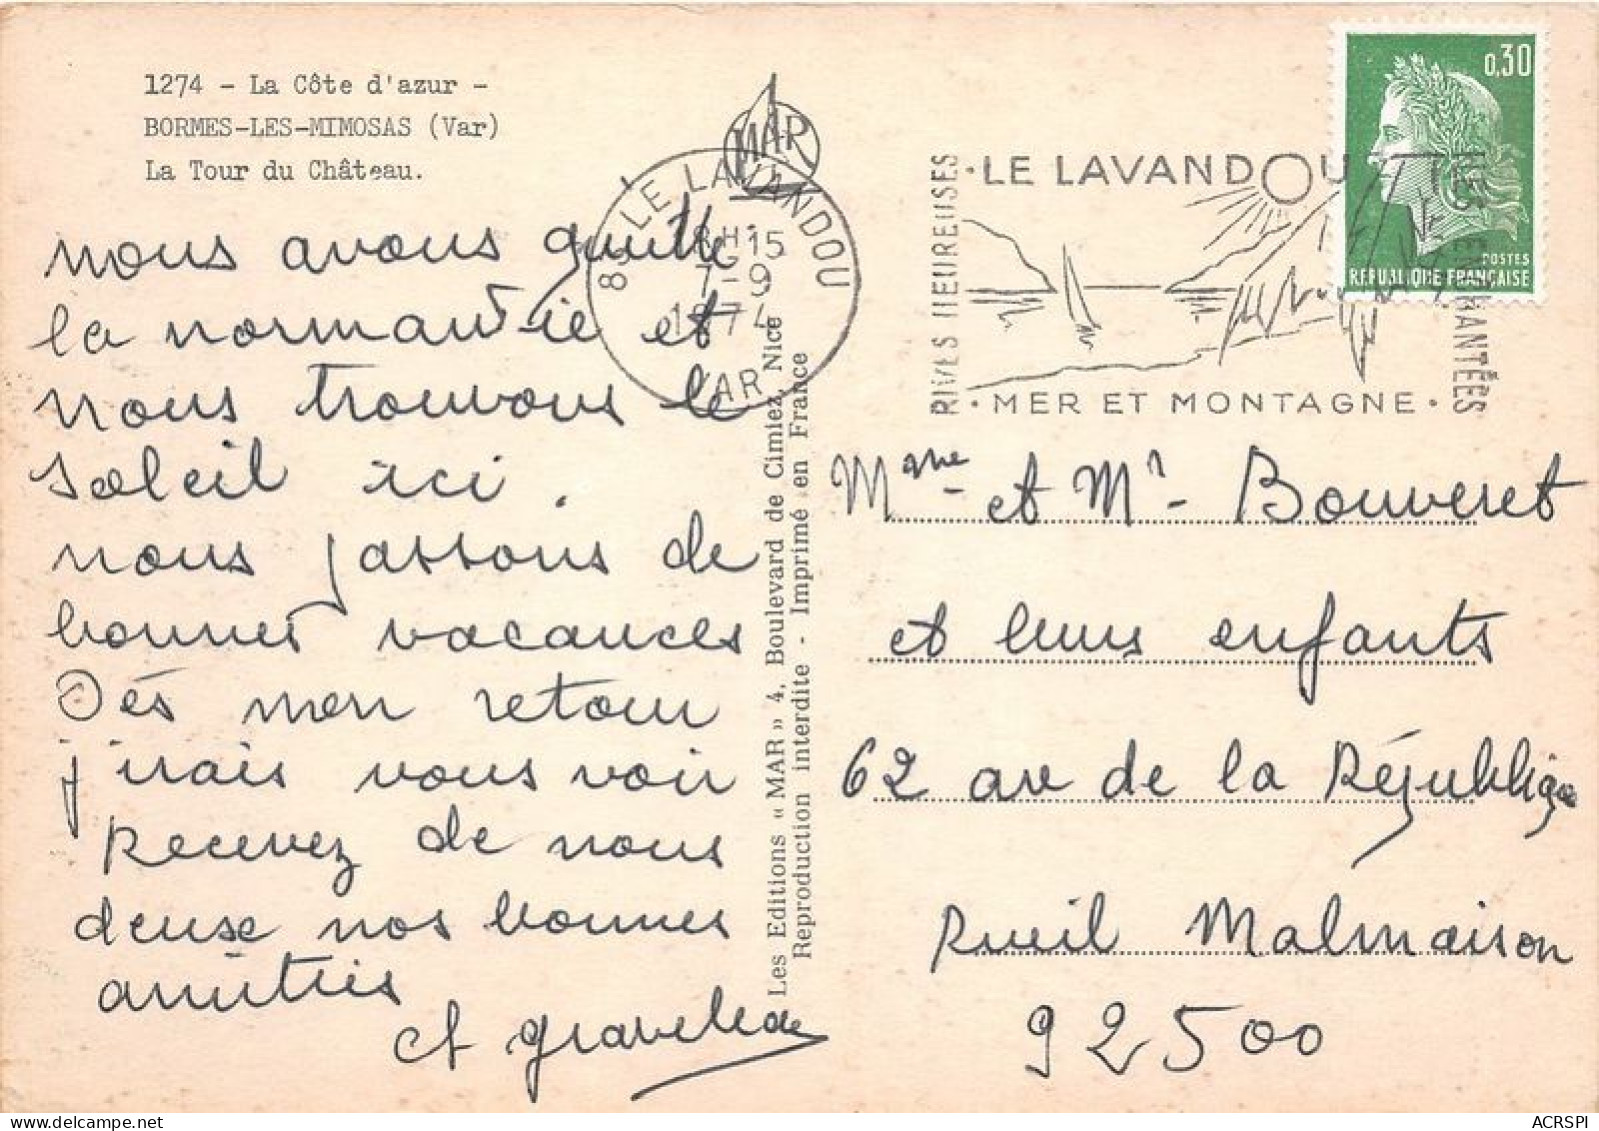 1274 - La Côte d'azur -
BORMES-LES-MIMOSAS (Var)
La Tour du Château.
nous avons quitté
la normandie et
nous trouvons le
soleil ici.
nous passons de
bonnes vacances
Dès mon retour
j'irais vous voir
Recevez de nous
deux nos bonnes
amitiés
MAR
83 LE LAVANDOU
18H15
7-9
1974
VAR
Les Editions « MAR » 4, Boulevard de Cimiez, Nice
Reproduction interdite - Imprimé en France
RIVES HEUREUSES
· LE LAVANDOU
· MER ET MONTAGNE ·
0,30
POSTES
REPUBLIQUE FRANÇAISE
Mme et Mr Bouveret
et leurs enfants
62 av de la République
Rueil Malmaison
92500
ACRSPI